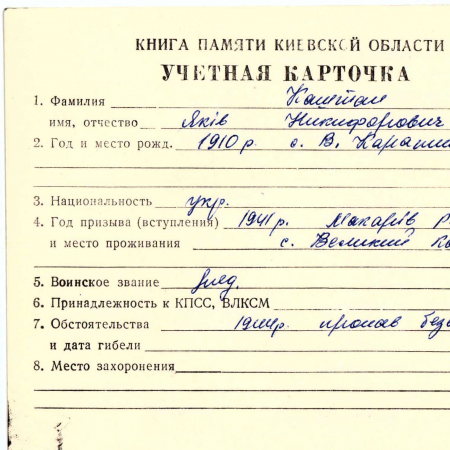 КНИГА ПАМЯТИ КИЕВСКОЙ ОБЛАСТИ
УЧЕТНАЯ КАРТОЧКА
1. Фамилия Каштан
имя, отчество Яків Никифорович
2. Год и место рожд. 1910 р. с. В. Карашин
3. Национальность укр.
4. Год призыва (вступления) 1941 р. Макарів р
и место проживания с. Великий Ка
5. Воинское звание
6. Принадлежность к КПСС, ВЛКСМ
7. Обстоятельства 1944р. пропав безв
и дата гибели
8. Место захоронения